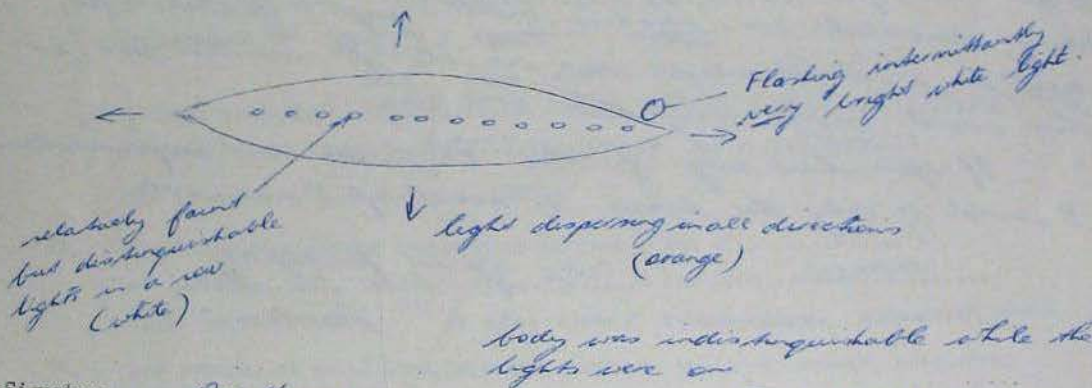 Flashing intermittantly
very bright white light.
relatively faint
but distinguishable
lights in a row
(white)
light dispersing in all directions
(orange)
body was indistinguishable while the
lights were on